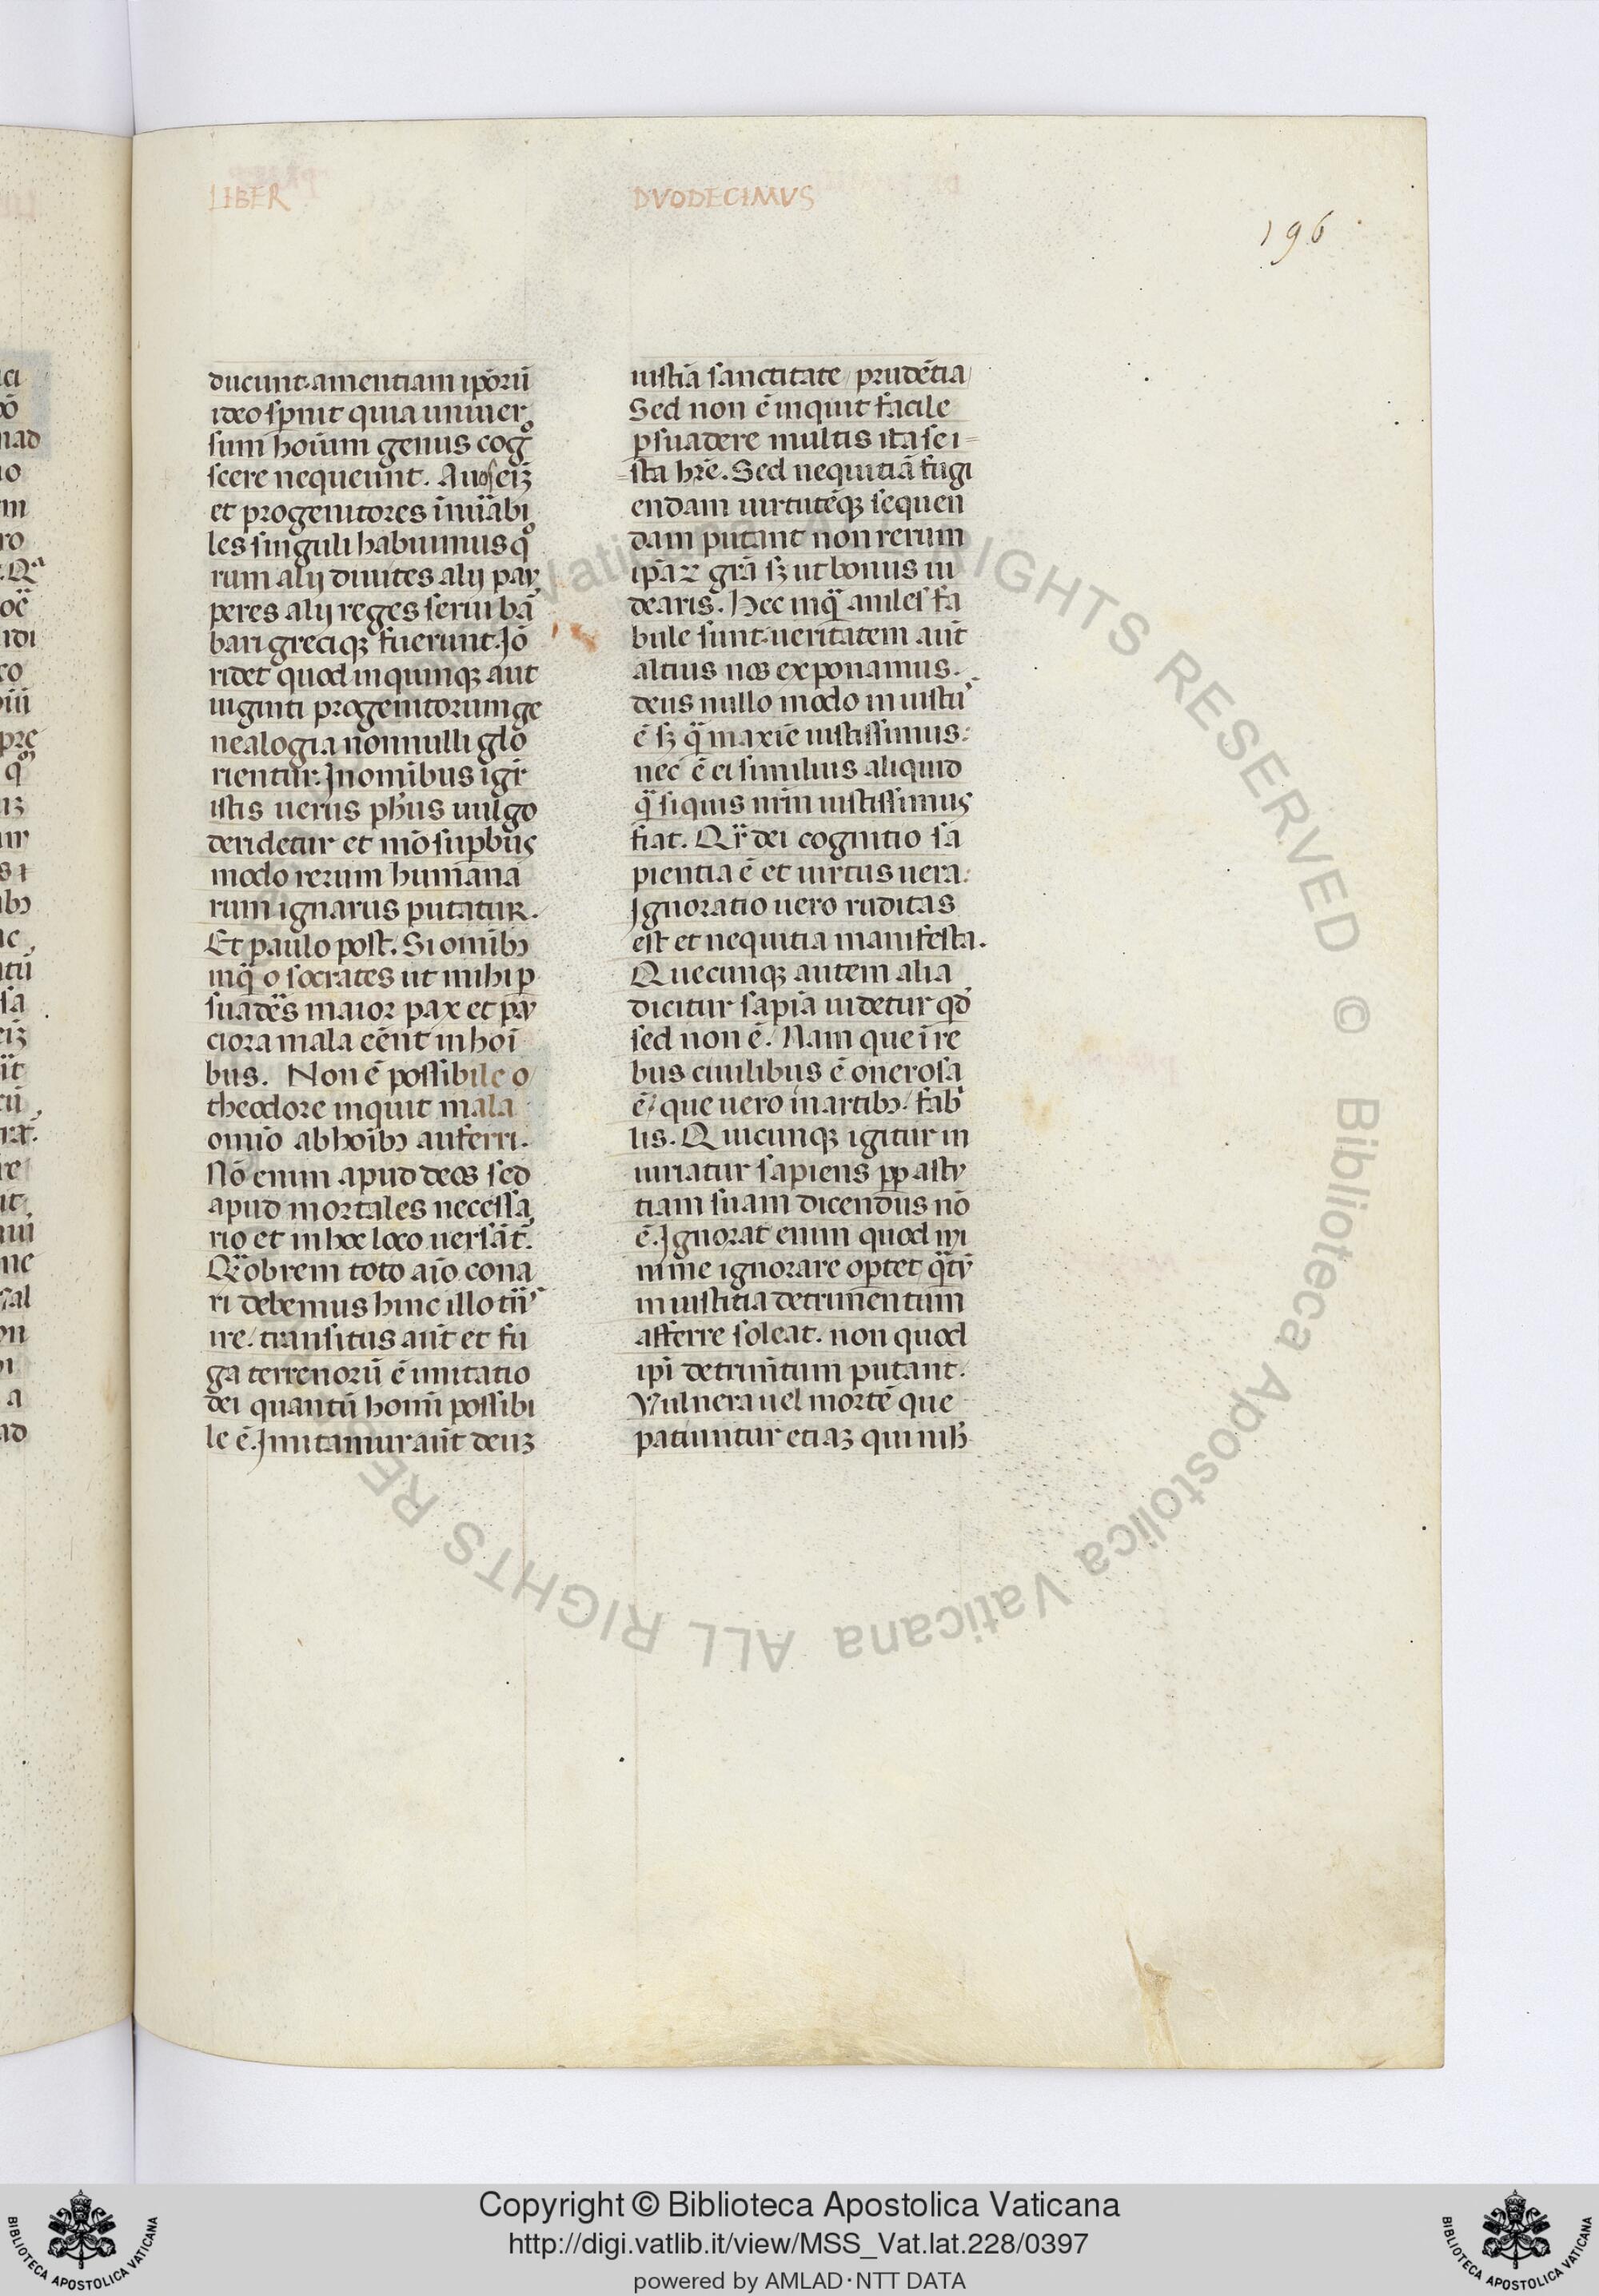 LIBER
ducunt. amentiam ipōrū
ideo spnit quia univer
sum hoīum genus cogͦ
scere nequeunt. Avos eīꝫ
et progenitores īnūabi
les singuli habuimus qͦ
rum alij divites alij pau
peres alij reges servi bā
bari greciqꝫ fuerunt. Jō
ridet quod in quinqꝫ aut
viginti progenitorum ge
nealogia nonnulli glo
rientur. In omībus igr̄
istis verus ph̄us vulgo
deridetur et mō supbus
modo rerum humana
rum ignarus putatur.
Et paulo post. Si omībꝫ
inqͣ o socrates ut mihi p
suades maior pax et pau
ciora mala eēnt in hoī
bus. Non ē possibile o
theodore inquit mala
omīo ab hoībꝫ auferri.
Nō enim apud deos sed
apud mortales necessa
rio et in hoc loco versāt.
Qͣobrem toto aīo cona
ri debemus hinc illo
ire / transitus aūt et fu
ga terrenorū ē imitatio
dei quantū homī possibi
le ē. Imitamur aūt deuꝫ
DVODECIMVS
iustiā sanctitate / prudētia /
Sed non ē inquit facile
psuadere multis ita se i=
=sta hr̄e. Sed nequitiā fugi
endam virtutēqꝫ sequen
dam putant non rerum
ipāꝝ grā sꝫ ut bonus vi
dearis. Hec inqͣ aniles fa
bule sunt. veritatem aūt
altius nos exponamus.
deus nullo modo iniustus
ē sꝫ qͣ maxīe iustissimus:
nec ē ei similius aliquid
qͣ si quis nr̄m iustissimus
fiat. Qr̄ dei cognitio sa
pientia ē et virtus vera:
Ignoratio vero ruditas
est et nequitia manifesta.
Quecunqꝫ autem alia
dicitur sapīa videtur qd̄
sed non ē. Nam que ī re
bus civilibus ē onerosa
ē / que vero in artibꝫ / fabͥ
lis. Quicunqꝫ igitur in
iuriatur sapiens pp astu
tiam suam dicendus nō
ē. Ignorat enim quod mi
nime ignorare optet qͣtū
iniustitia detrimentum
afferre soleat. non quod
ipī detrimētum putant.
Vulnera vel mortē que
patiuntur etiaꝫ qui nih̄
196
Copyright © Biblioteca Apostolica Vaticana
http://digi.vatlib.it/view/MSS_Vat.lat.228/0397
powered by AMLAD·NTT DATA
BIBLIOTECA APOSTOLICA VATICANA
BIBLIOTECA APOSTOLICA VATICANA